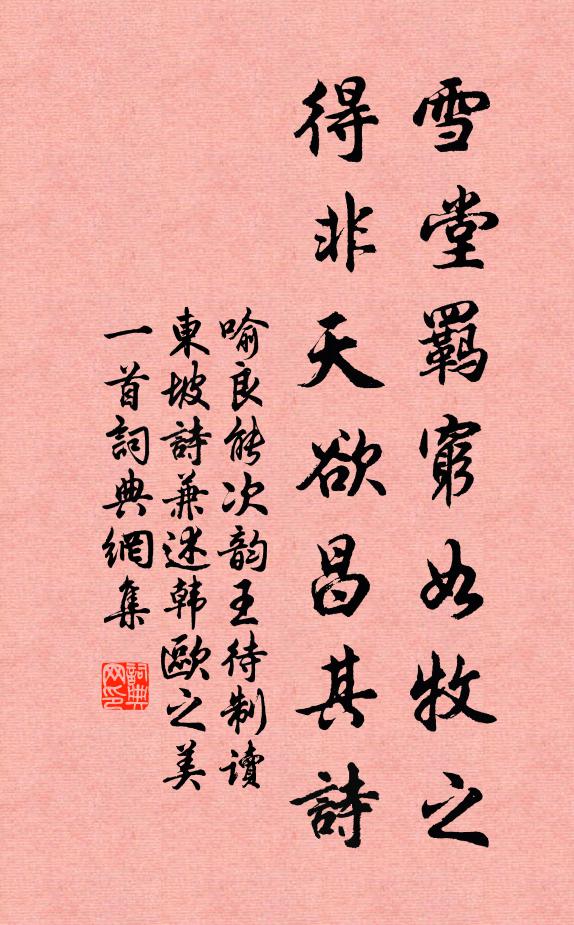 雪堂羈窮如牧之
得非天欲昌其詩
喻良能次韵王待制读
東坡詩兼述韩歐之美
一首詞典網集
詞典网印